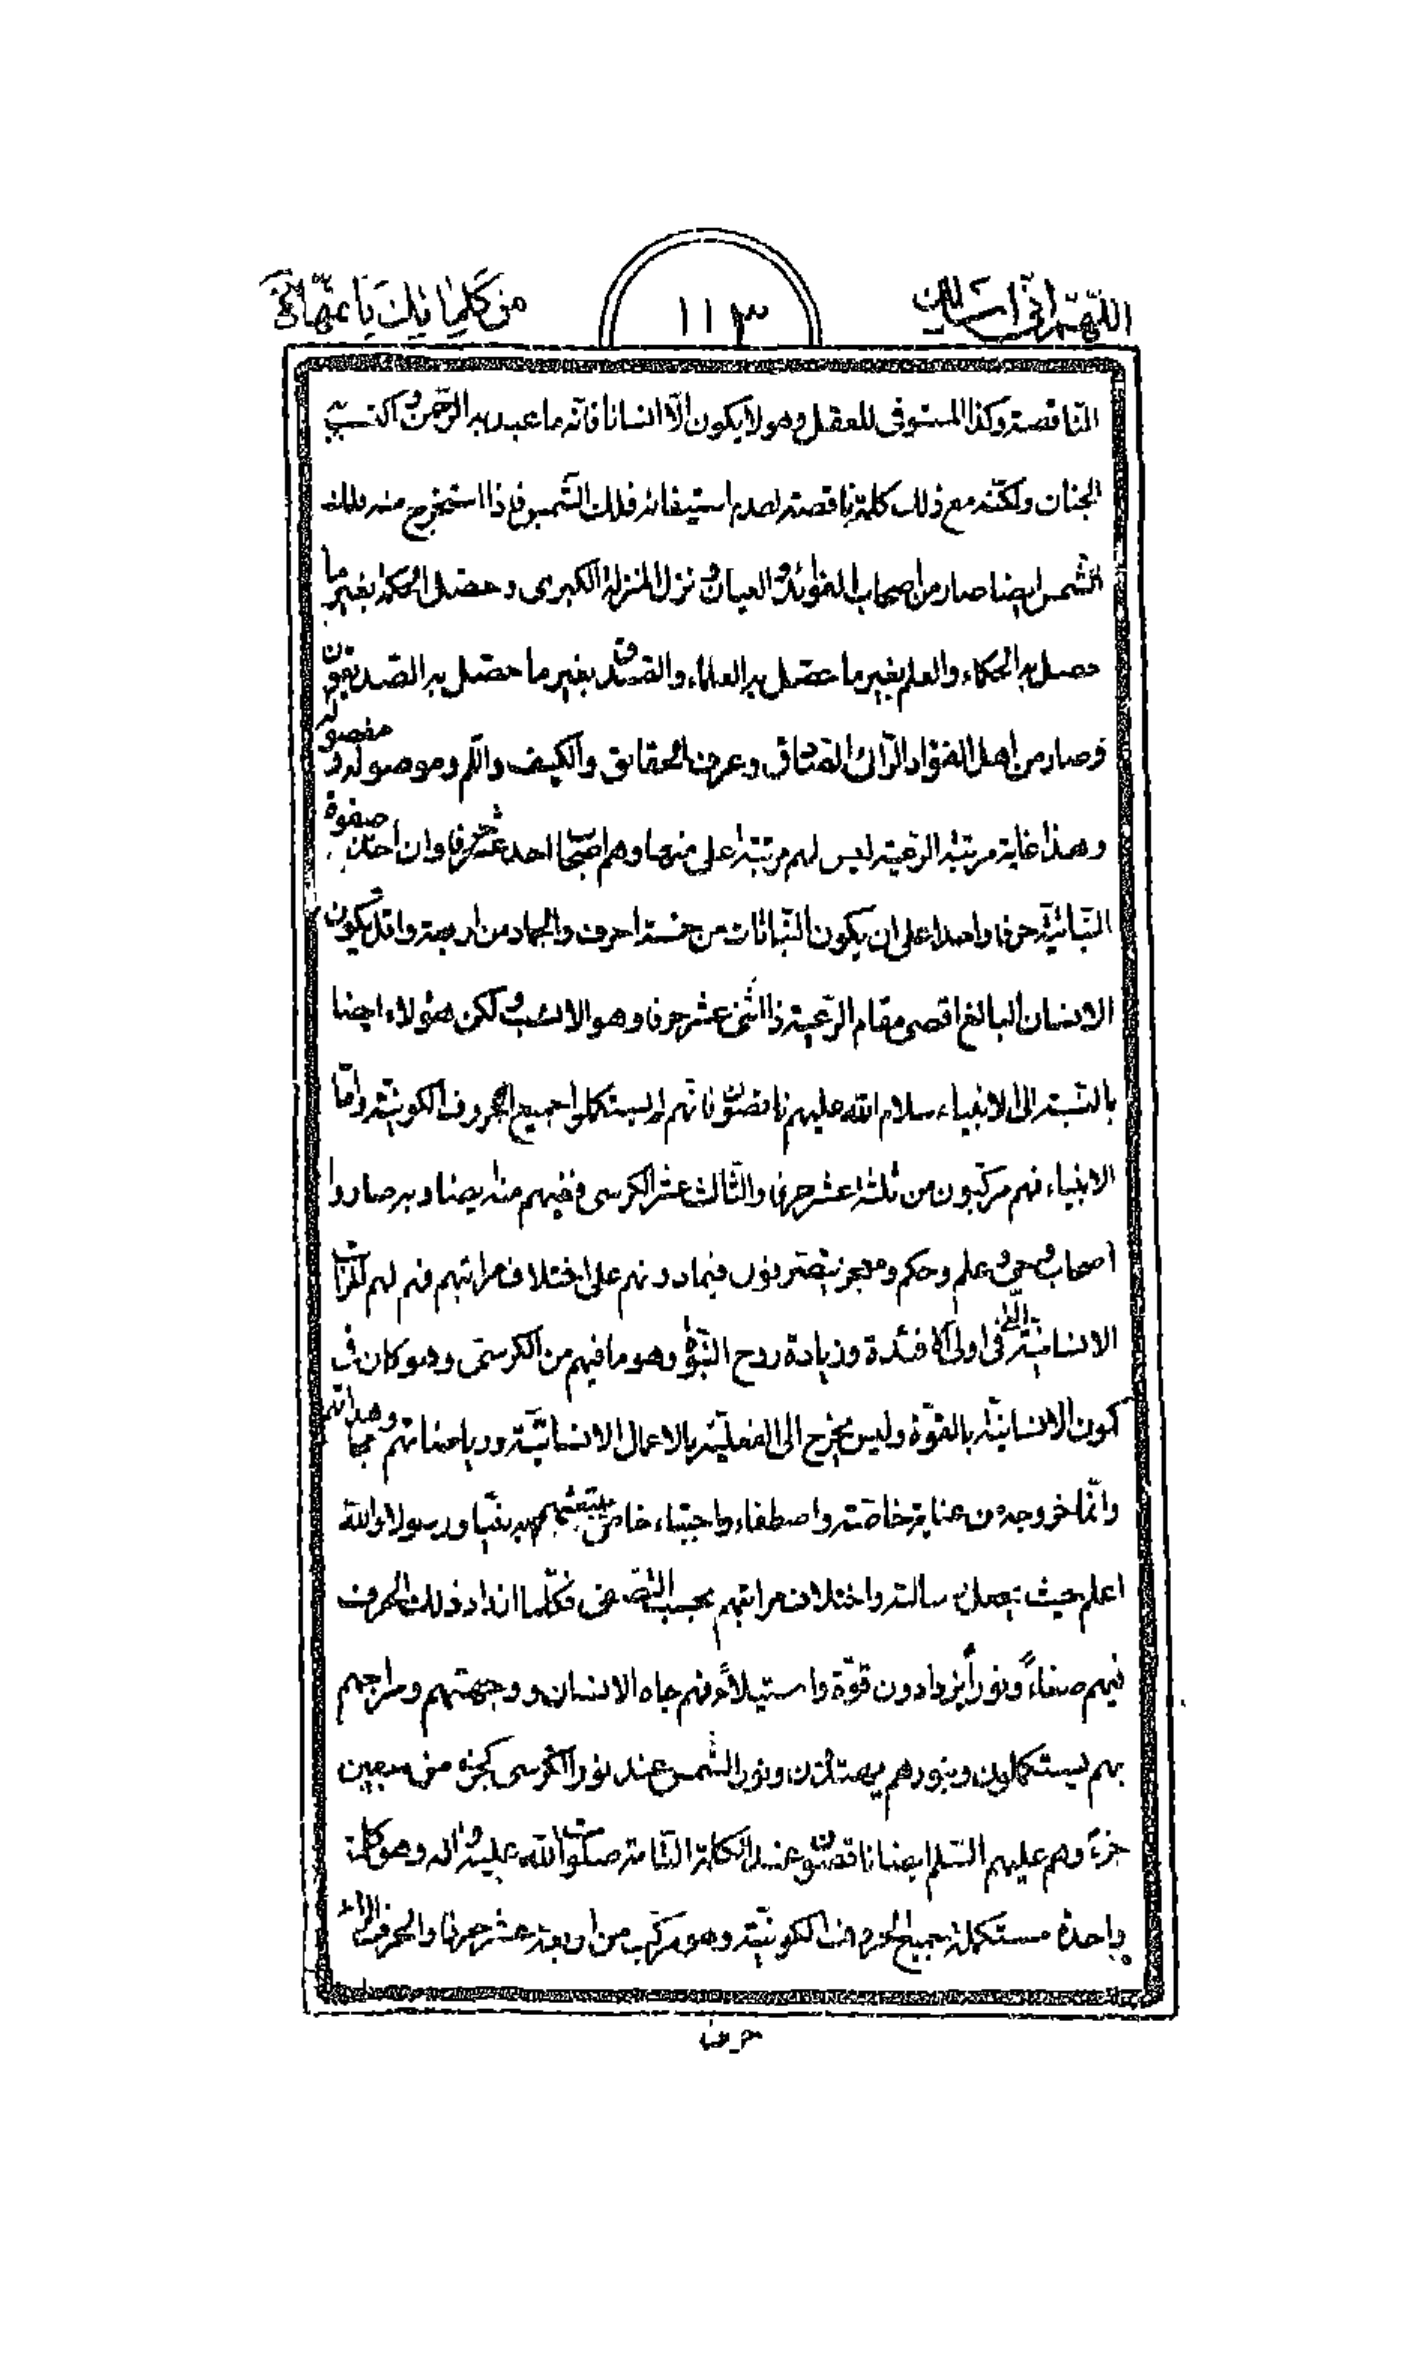 اللّهمّ انّی اسألك
١١٣
من كلماتك باتمّها
الناقصة وكذا المستوفی للعقل وهو لا يكون الّا انسانا فانّه ما عبد به الرّحمن و اكتسب به
الجنان ولكنّه مع ذلك كلمة ناقصة لعدم استيفائه فلك الشّمس فاذا استخرج منه فلك
الشّمس ايضا صار من اصحاب الفوائد و العيان و نزل المنزلة الكبری و حصّل الحكمة بغير ما
حصل به الحكماء و العلم بغير ما حصّل به العلماء و الصّدق بغير ما حصّل به الصّديقون
و صار من اهل الفؤاد و عرف الحقايق و الكيف و اللّم و موصوله و مفصوله
و هذا غاية مرتبة الرّعية ليس لهم مرتبة اعلی منها و هم اصحاب احد عشر حرفا و ان اخذت صفوة
النّباتيّة حرفا واحدا علی ان يكون النّباتات من خمسة احرف و الجماد من اربعة و اقل يكون
الانسان البالغ اقصی مقام الرّعية ذا اثنی عشر حرفا و هو الانسب و لكن هؤلاء ايضا
بالنّسبة الی الانبياء سلام الله عليهم ناقصون فانّهم لم يستكملوا جميع الحروف الكونيّة و امّا
الانبياء فهم مركّبون من ثلثة عشر حرفا و الثّالث عشر الكرسی ففيهم منه ايضا و به صاروا
اصحاب وحی و علم و حكم و معجز يتصرّفون فيما دونهم علی اختلاف مراتبهم فهم لهم
الانسانيّة فی اولی الافئدة و زيادة روح النّبوّة و هو ما فيهم من الكرسی و هو كان فی
كون الانسانيّة بالقوّة و ليس يخرج الی الفعليّة بالاعمال الانسانيّة و رياضاتهم و مجاهداتهم
و انّما خروجه من عناية خاصّة و اصطفاء و اجتباء خاص يبتعثهم به نبيّا و رسولا و الله
اعلم حيث يجعل رسالته و اختلاف مراتبهم بحسب فكلّما ازداد ذلك الحرف
فيهم صفاءً و نوراً يزدادون قوّة و استيلاءً فهم جاه الانسان و وجهتهم و معارجهم
بهم يستكملون و بنورهم يهتدون و نور الشّمس عند نور الكرسی كجزء من سبعين
جزءً و هم عليهم السّلم ايضا ناقصون عند الكلمة التّامة صلوات الله عليه و اله و هو كلمة
واحدة مستكملة بجميع الحروف الكونيّة و هو مركّب من اربعة عشر حرفا و الحرف
حرف